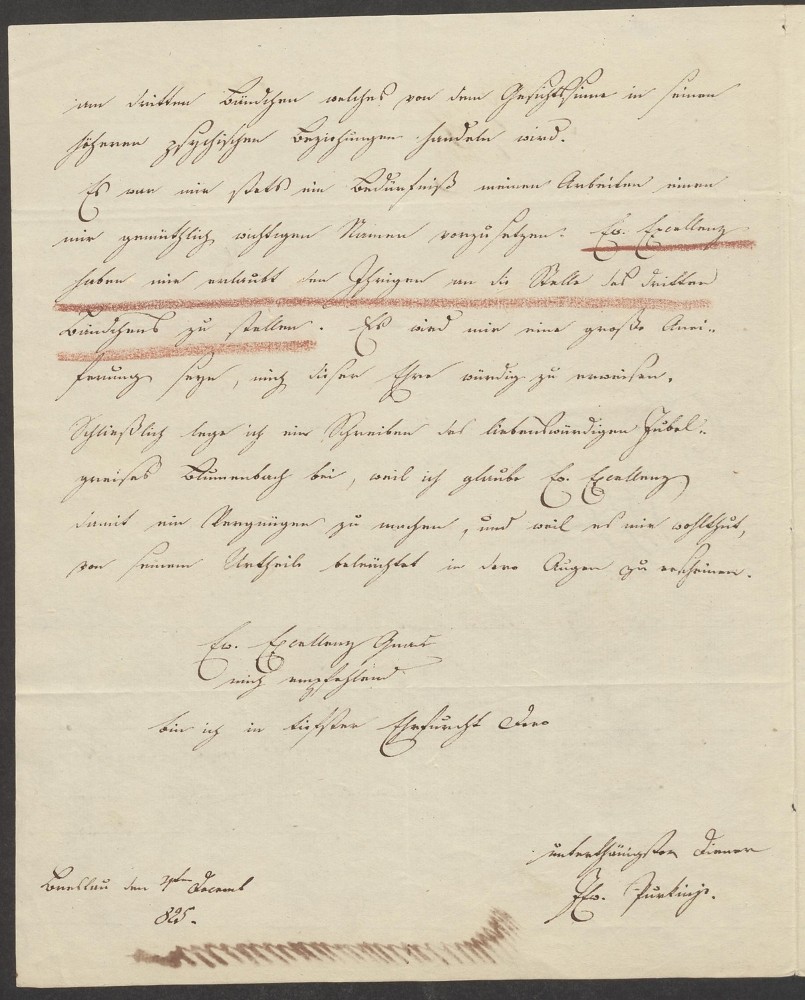 am dritten Bändchen welches von dem Gesichtssinne in seinen
höheren psychischen Beziehungen handeln wird.
Es war mir stets ein Bedürfniß meinen Arbeiten einen
mir gemüthlich wichtigen Namen vorzusetzen. Ew. Excellenz
haben mir erlaubt den Ihrigen an die Stelle des dritten
Bändchens zu stellen. Es wird mir eine große Anei-
ferung seyn, mich dieser Ehre würdig zu erweisen.
Schließlich lege ich ein Schreiben des liebenswürdigen Jubel-
greises Blumenbach bei, weil ich glaube Ew. Excellenz
damit ein Vergnügen zu machen, und weil es mir wohlthut,
von seinem Urtheile beleuchtet in dero Augen zu erscheinen.
Ew. Excellenz Gnad
mich empfehlend
bin ich in tiefster Ehrfurcht Dero
unterthänigster Diener
Joh. Purkinje.
Breslau den Decemb
825.